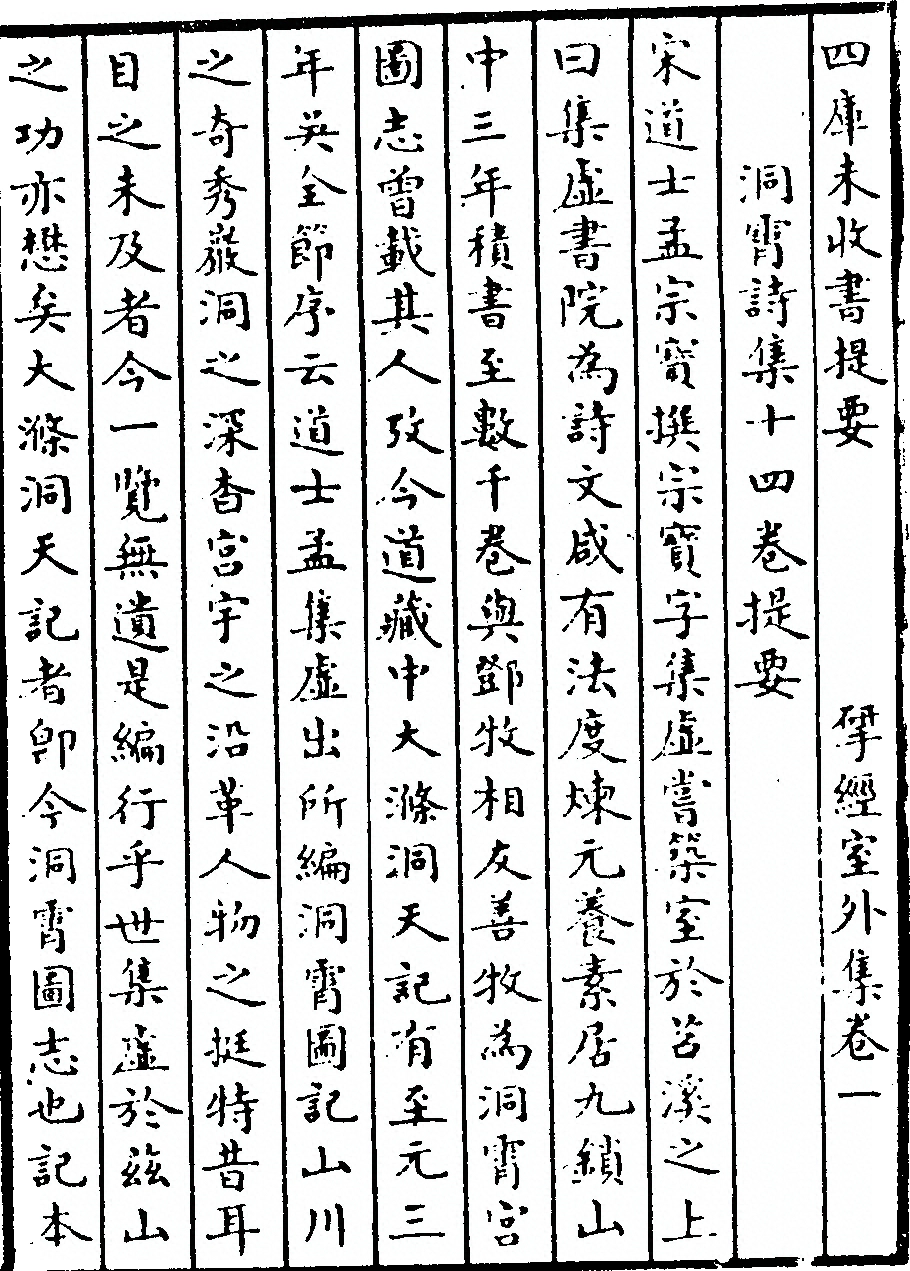 四庫未收書提要　　　　揅經室外集卷一
洞霄詩集十四卷提要
宋道士孟宗寳撰宗寳字集虛嘗築室於苕溪之上
曰集虛書院為詩文咸有法度煉元養素居九鎖山
中三年積書至數千卷與鄧牧相友善牧為洞霄宮
圖志曾載其人攷今道藏中大滌洞天記有至元三
年吴全節序云道士孟集虛出所編洞霄圖記山川
之奇秀巖洞之深杳宮宇之沿革人物之挺特昔耳
目之未及者今一覽無遺是編行乎世集虛於兹山
之功亦懋矣大滌洞天記者卽今洞霄圖志也記本